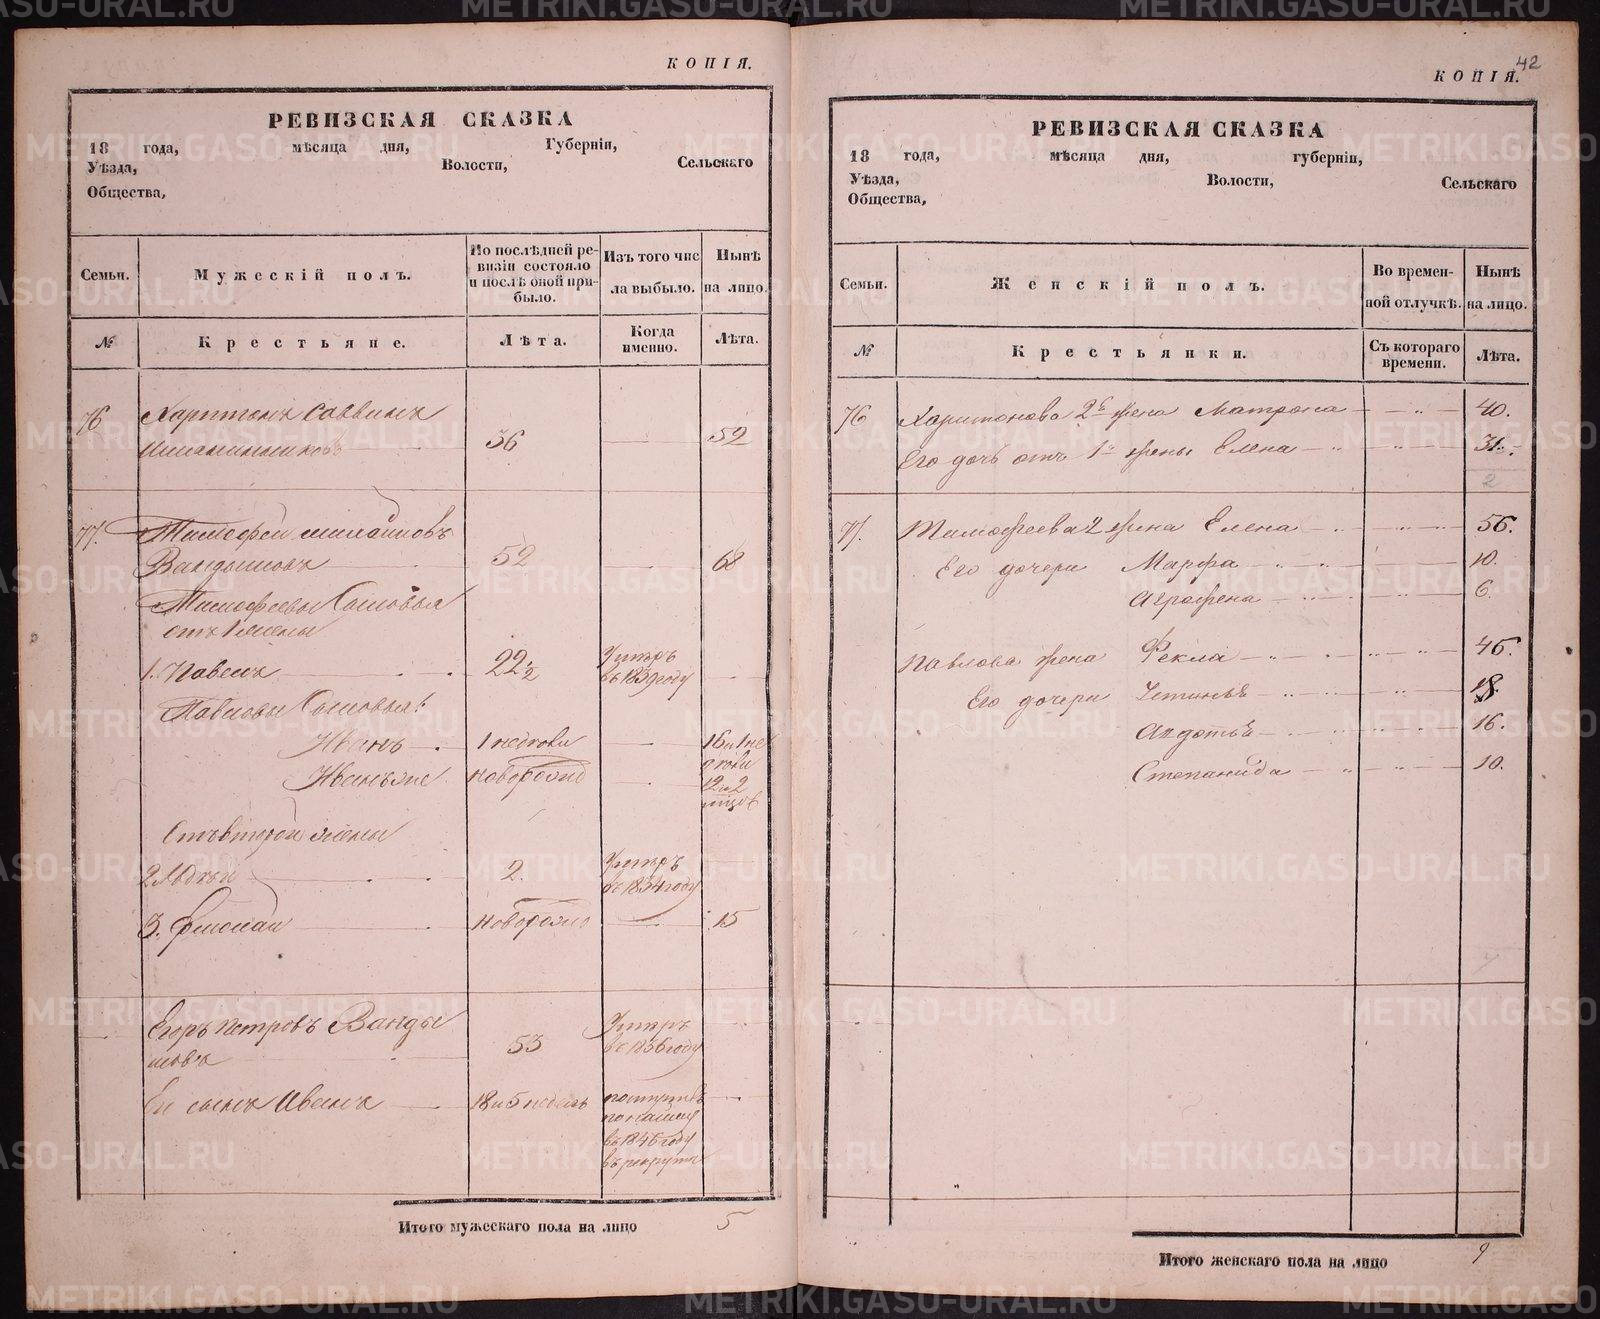 КОПІЯ.
РЕВИЗСКАЯ СКАЗКА
18 года, мѣсяца дня, Губерніи,
Уѣзда, Волости, Сельскаго
Общества,
Семьи. Мужескій полъ. По послѣдней ревизіи состояло и послѣ оной прибыло. Изъ того числа выбыло. Нынѣ на лицо.
№ Крестьяне. Лѣта. Когда именно. Лѣта.
76 Харитонъ Саввинъ
36 52
77. Тимофей
Вандышовъ 52 68
Тимофеевы Сыновья
отъ 1 жены
1. Павелъ 22 1/2 Умеръ въ 1839 году
Павловы Сыновья:
Иванъ 1 недѣли 16 и 1 недѣли
Иванъ же новорожд 12 и 2 мѣсяц
Отъ второй жены
2. 2. Умеръ въ 1854 году
3. Ермолай новорожд 15
Егоръ Петровъ Ванды
шовъ 53 Умеръ въ 1856 году
Ег сынъ Иванъ 18 и 5 недѣль поступилъ
въ 1846 году
въ рекруты
Итого мужескаго пола на лицо 5
42
КОПІЯ.
РЕВИЗСКАЯ СКАЗКА
18 года, мѣсяца дня, губерніи,
Уѣзда, Волости, Сельскаго
Общества,
Семьи. Женскій полъ. Во временной отлучкѣ. Нынѣ на лицо.
№ Крестьянки. Съ котораго времени. Лѣта.
76 Харитонова 2я жена Матрона 40.
Его дочь отъ 1й жены Елена 31.
2
77. Тимофеева 2 жена Елена 56.
Его дочери Марфа 10.
Аграфена 6.
Павлова жена Фекла 45.
Его дочери Устинья 18
Авдотья 16.
Степанида 10.
7
Итого женскаго пола на лицо 9
METRIKI.GASO-URAL.RU